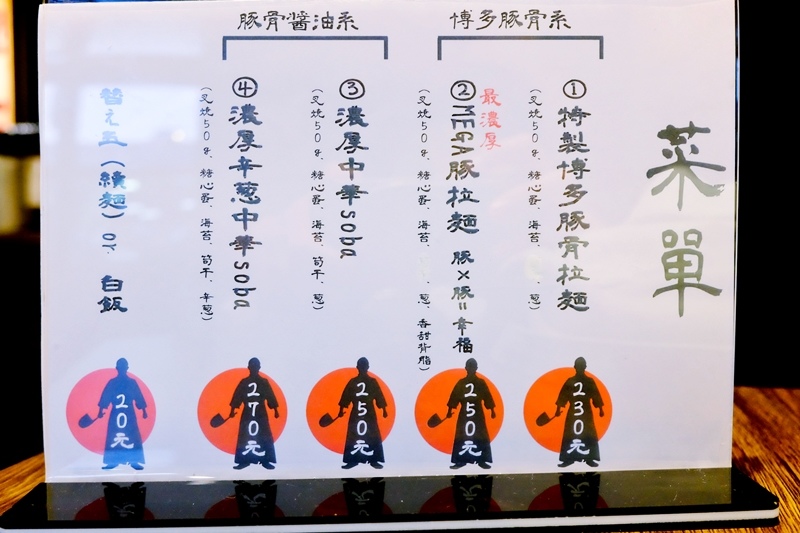 菜單
博多豚骨系
①特製博多豚骨拉麵
(叉燒50g、糖心蛋、海苔、蔥)
230元
最濃厚
②MEGA豚拉麵 豚×豚=幸福
(叉燒50g、糖心蛋、海苔、蔥、香甜背脂)
250元
豚骨醬油系
③濃厚中華soba
(叉燒50g、糖心蛋、海苔、筍干、蔥)
250元
④濃厚辛蔥中華soba
(叉燒50g、糖心蛋、海苔、筍干、辛蔥)
270元
替え玉(續麵)or.白飯
20元